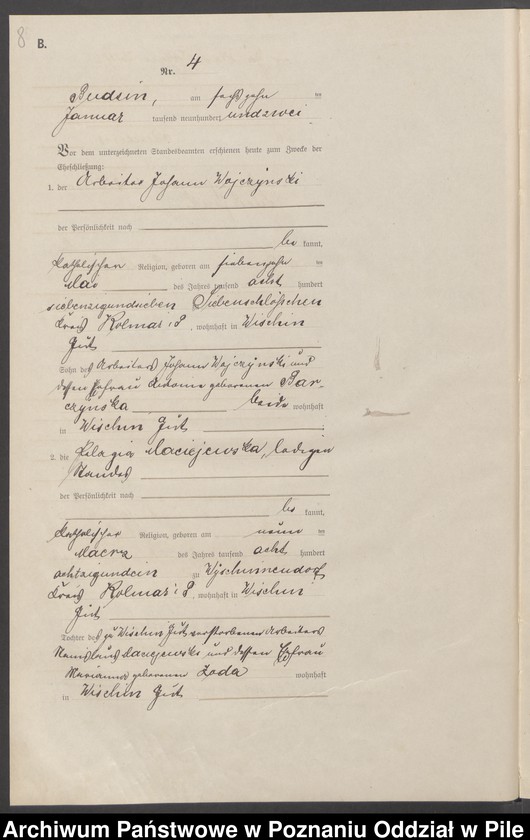 8
B.
Nr. 4
Budsin, am sechszehn ten
Januar tausend neunhundert undzwei
Vor dem unterzeichneten Standesbeamten erschienen heute zum Zwecke der
Eheschließung:
1. der Arbeiter Johann Wojczynski
der Persönlichkeit nach
be kannt,
katholischer Religion, geboren am siebenzehn ten
Mai des Jahres tausend acht hundert
siebenzigundsieben Siebenschlößchen
Kreis Kolmar i P., wohnhaft in Wischin
Gut
Sohn des Arbeiters Johann Wojczynski und
dessen Ehefrau geborenen Bar-
czynska beide wohnhaft
in Wischin Gut
2. die Pelagia Maciejewska, ledigen
Standes
der Persönlichkeit nach
be kannt,
katholischer Religion, geboren am neun ten
Maerz des Jahres tausend acht hundert
achtzigundein zu Wyschinnendorf
Kreis Kolmar i P., wohnhaft in Wischin
Gut
Tochter des zu Wischin Gut verstorbenen Arbeiters
Stanislaus Maciejewski und dessen Ehefrau
Marianna geborenen Zoda wohnhaft
in Wischin Gut
Archiwum Państwowe w Poznaniu Oddział w Pile